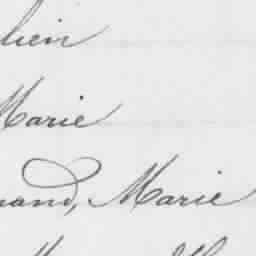 lien
Marie
nand, Marie